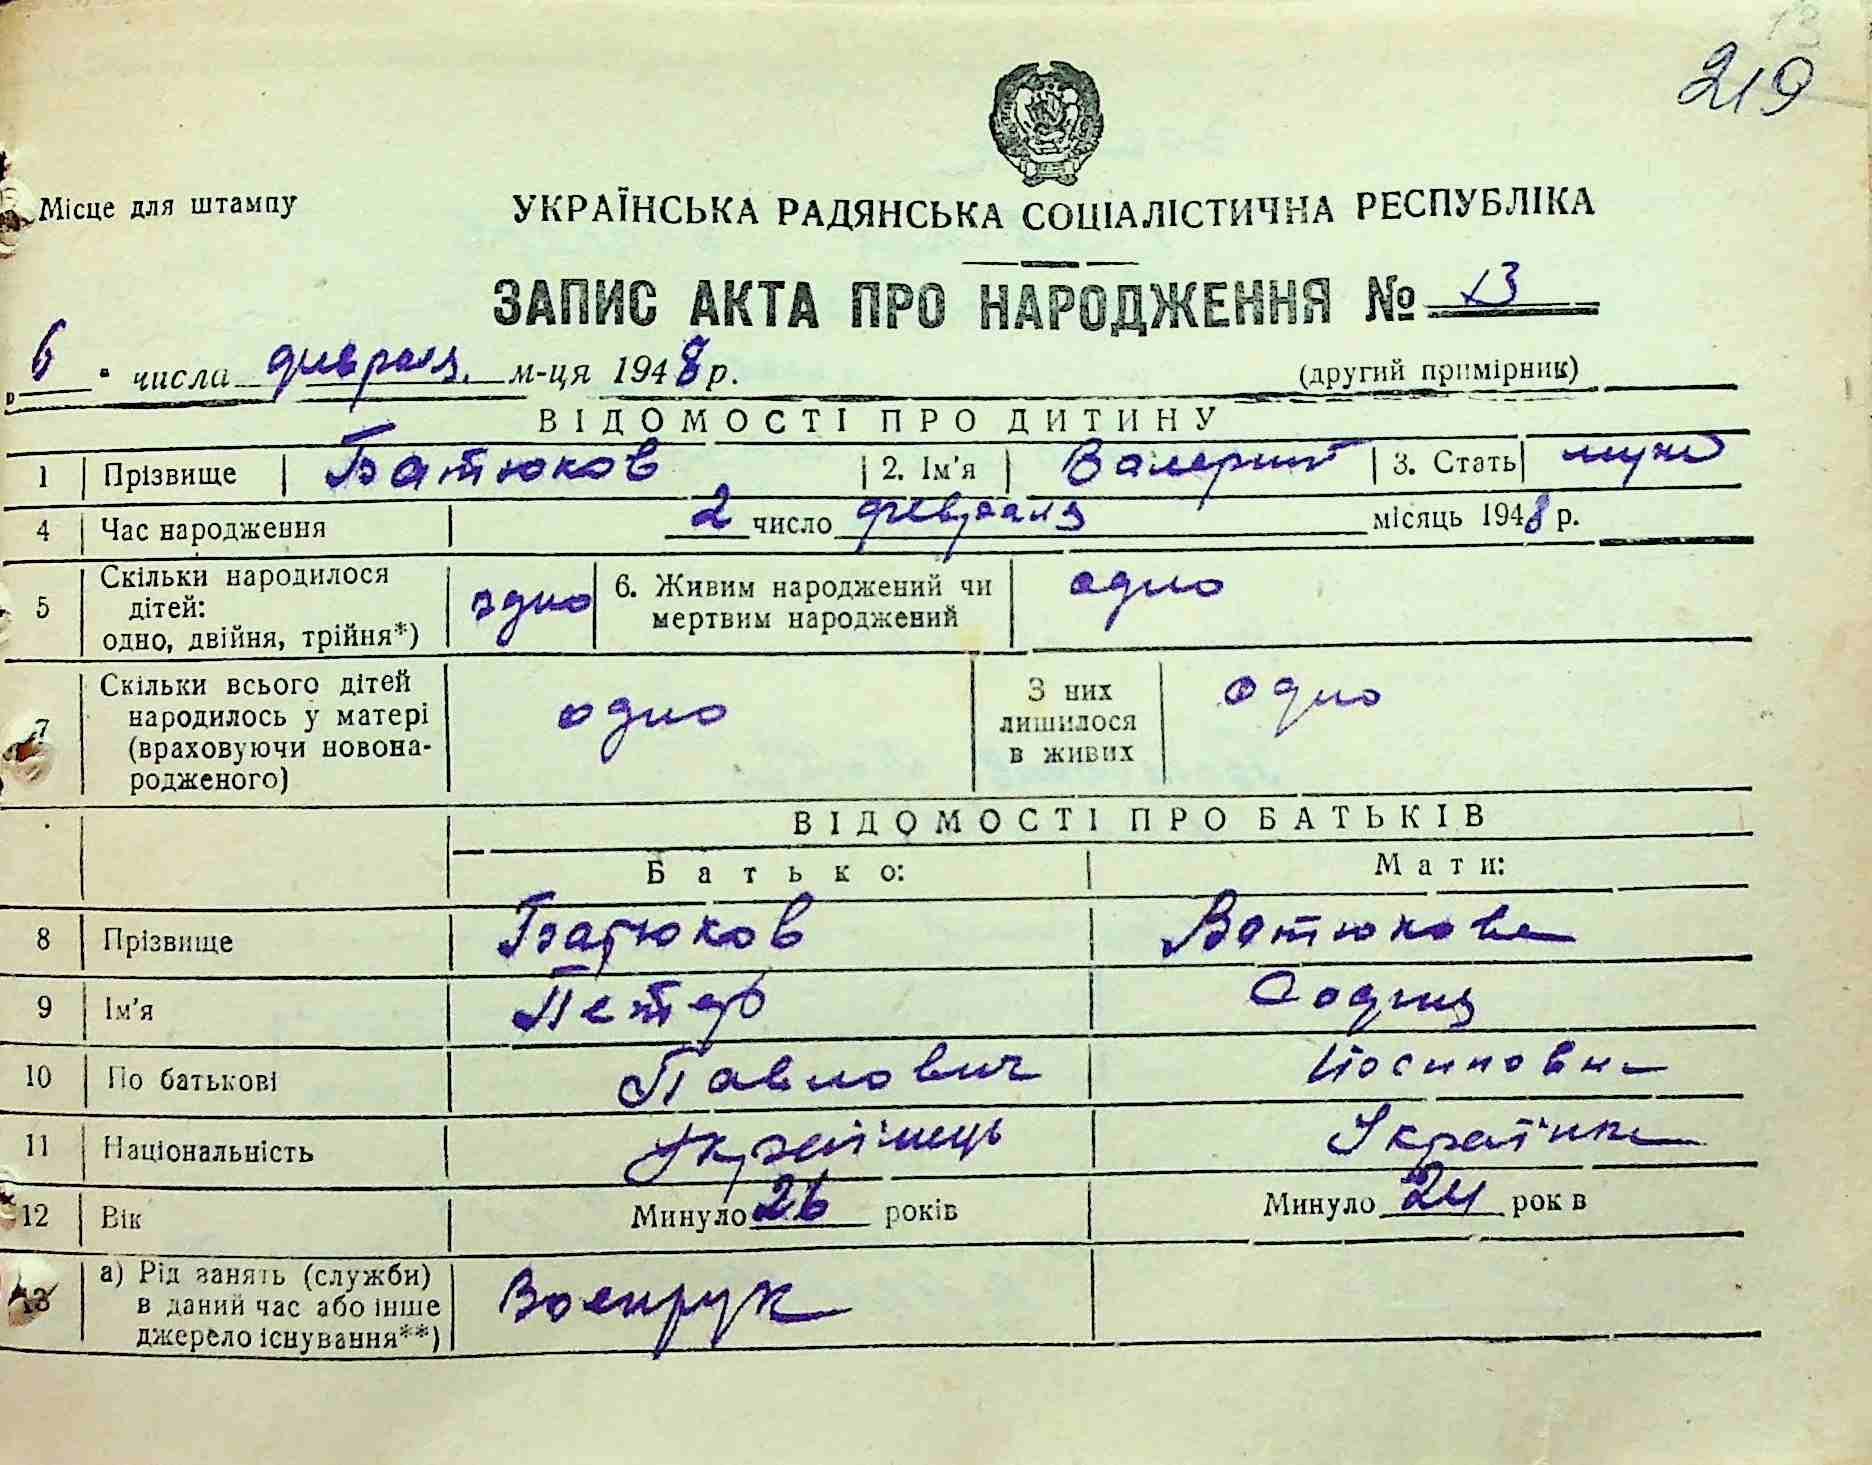 13
219
Місце для штампу
УКРАЇНСЬКА РАДЯНСЬКА СОЦІАЛІСТИЧНА РЕСПУБЛІКА
ЗАПИС АКТА ПРО НАРОДЖЕННЯ № 13
„6“ числа февраля м-ця 1948 р. (другий примірник)
ВІДОМОСТІ ПРО ДИТИНУ
1 Прізвище Батюков 2. Ім'я Валерий 3. Стать муж
4 Час народження 2 число февраля місяць 1948 р.
5 Скільки народилося дітей: одно, двійня, трійня*) одно 6. Живим народжений чи мертвим народжений одно
7 Скільки всього дітей народилось у матері (враховуючи новонародженого) одно З них лишилося в живих одно
ВІДОМОСТІ ПРО БАТЬКІВ
Батько: Мати:
8 Прізвище Батюков Батюкова
9 Ім'я Петр София
10 По батькові Павлович Иосиповна
11 Національність Українець Українка
12 Вік Минуло 26 років Минуло 24 рок в
13 а) Рід занять (служби) в даний час або інше джерело існування**) Военрук